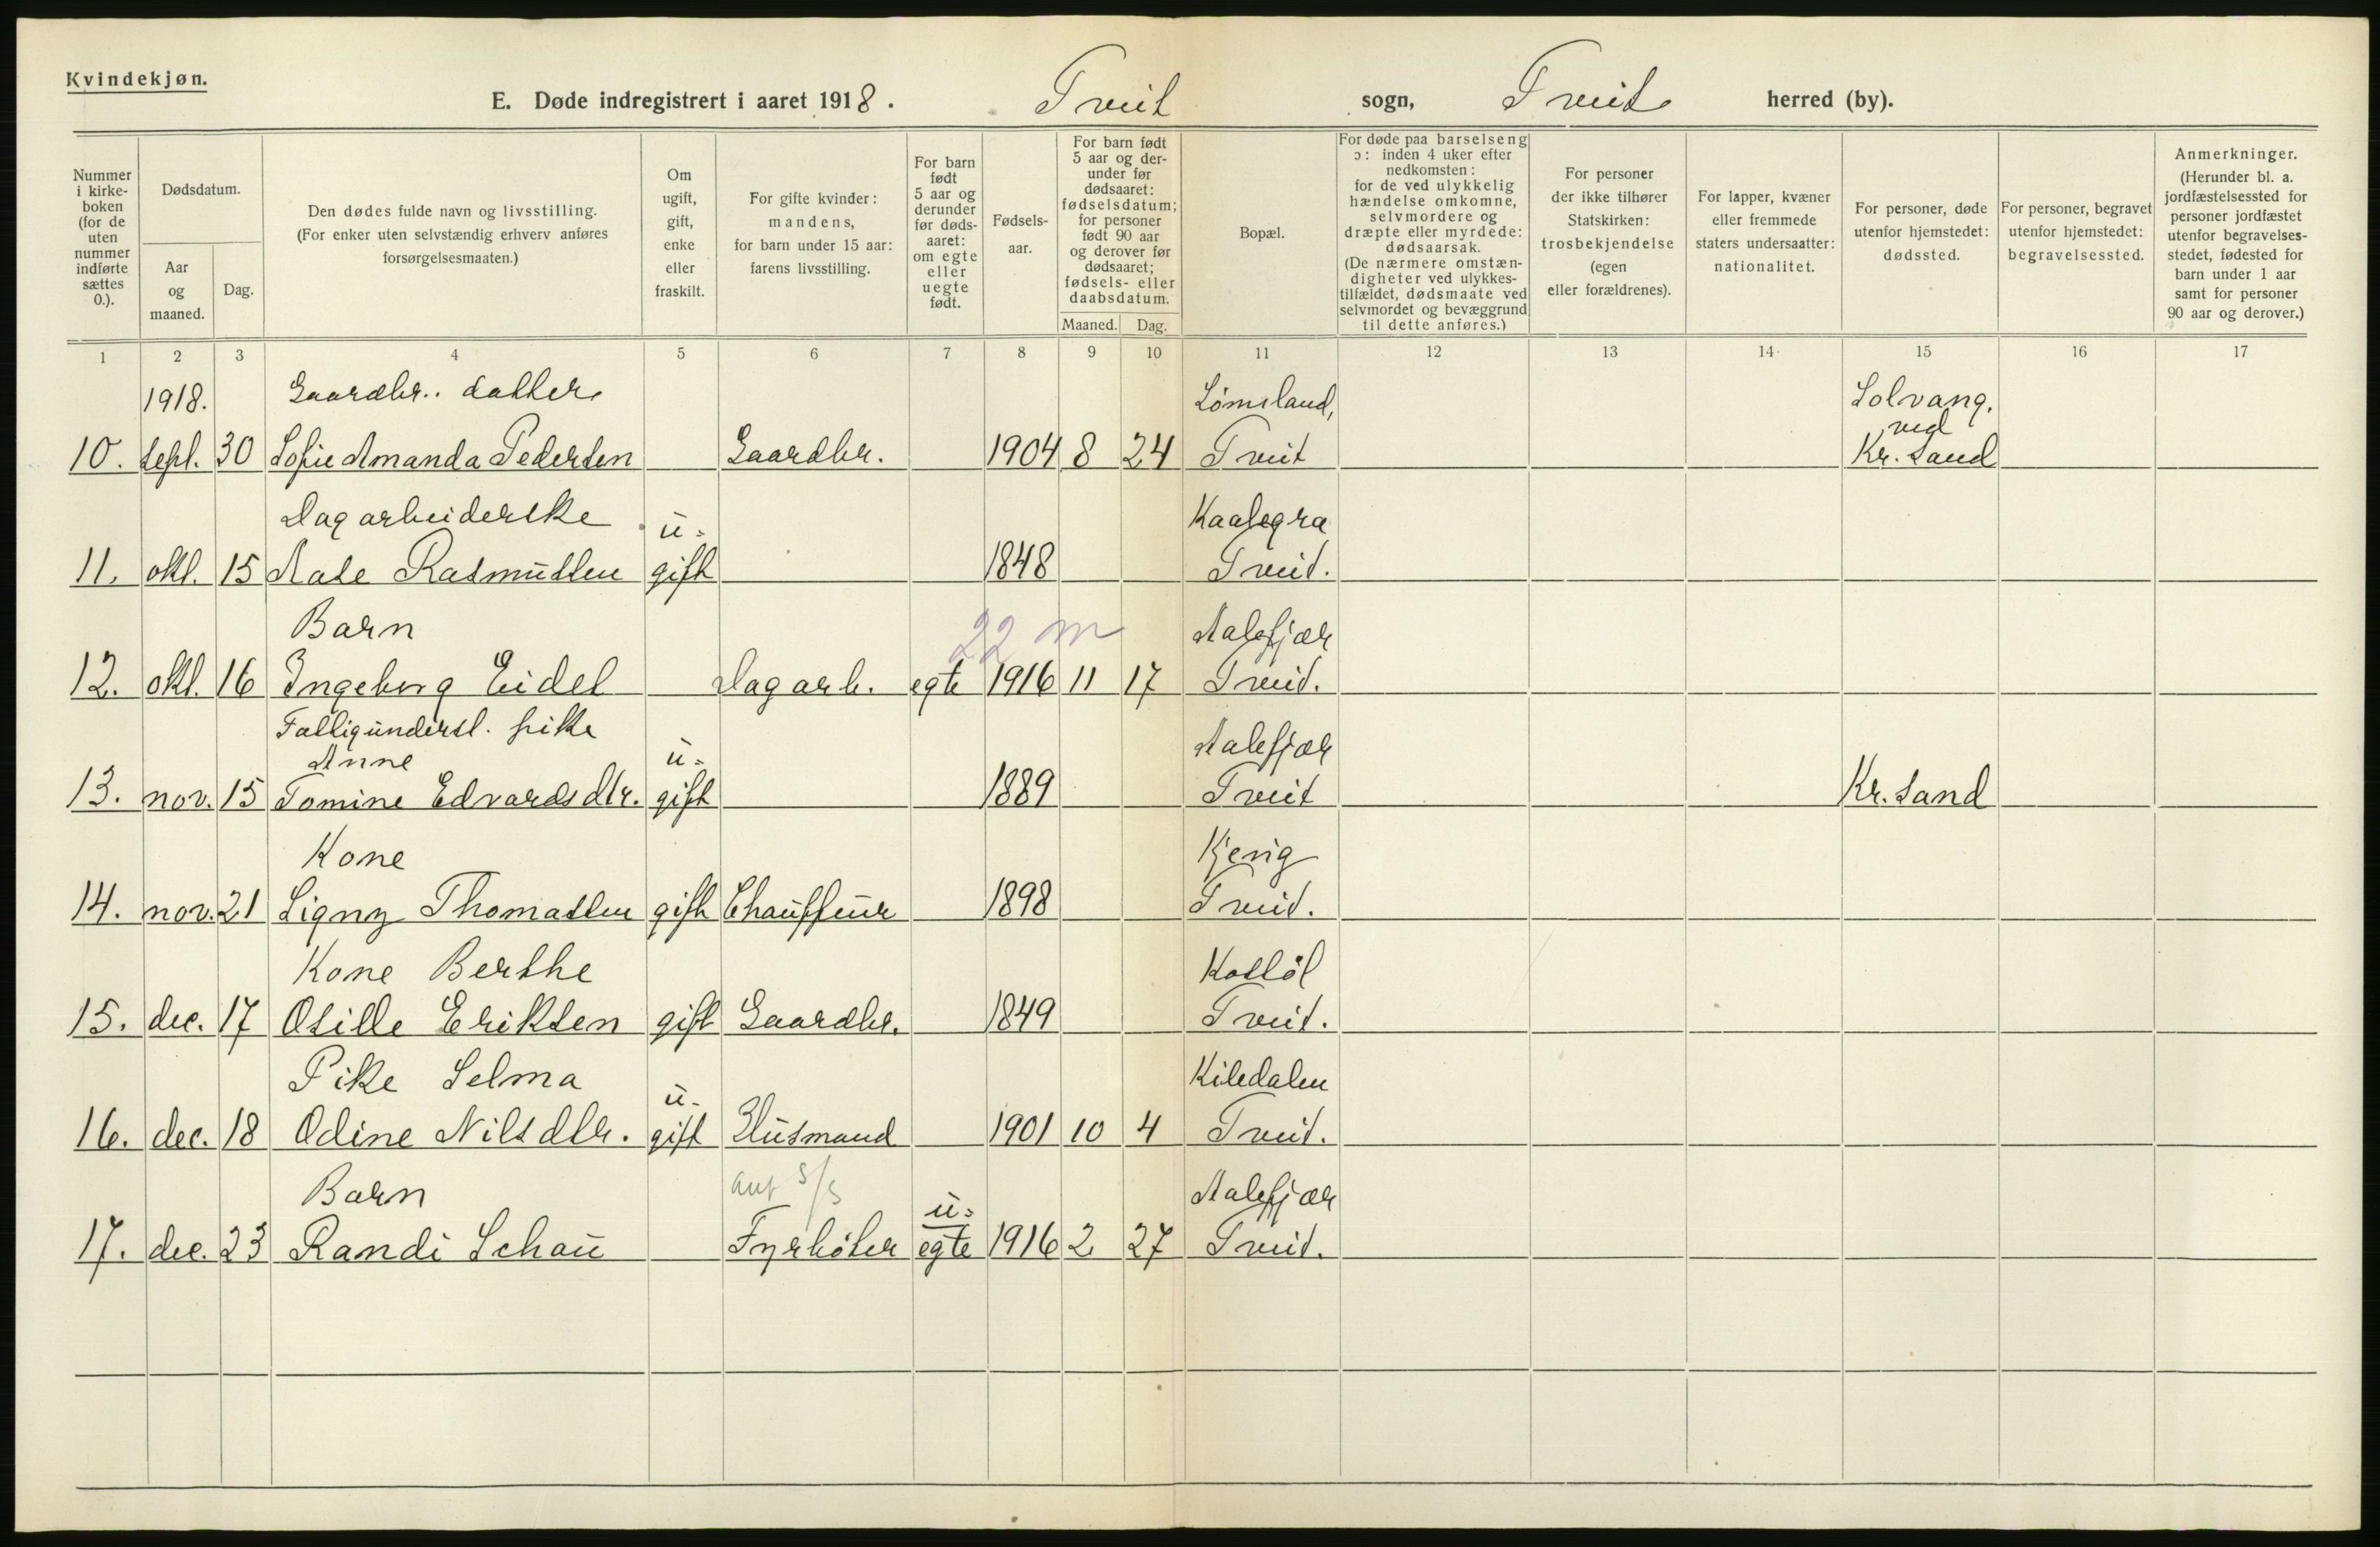 Kvindekjøn.
E. Døde indregistrert i aaret 1918. Tveit sogn, Tveit herred (by).
Nummer i kirkeboken (for de uten nummer indførte sættes 0.).
Dødsdatum.
Aar og maaned.
Dag.
Den dødes fulde navn og livsstilling. (For enker uten selvstændig erhverv anføres forsørgelsesmaaten.)
Om ugift, gift, enke eller fraskilt.
For gifte kvinder: mandens, for barn under 15 aar: farens livsstilling.
For barn født 5 aar og derunder før dødsaaret: om egte eller uegte født.
Fødselsaar.
For barn født 5 aar og derunder før dødsaaret: fødselsdatum; for personer født 90 aar og derover før dødsaaret; fødsels- eller daabsdatum.
Maaned. Dag.
Bopæl.
For døde paa barselseng ɔ: inden 4 uker efter nedkomsten: for de ved ulykkelig hændelse omkomne, selvmordere og dræpte eller myrdede: dødsaarsak. (De nærmere omstændigheter ved ulykkestilfældet, dødsmaate ved selvmordet og bevæggrund til dette anføres.)
For personer der ikke tilhører Statskirken: trosbekjendelse (egen eller forældrenes).
For lapper, kvæner eller fremmede staters undersaatter: nationalitet.
For personer, døde utenfor hjemstedet: dødssted.
For personer, begravet utenfor hjemstedet: begravelsessted.
Anmerkninger. (Herunder bl. a. jordfæstelsessted for personer jordfæstet utenfor begravelsesstedet, fødested for barn under 1 aar samt for personer 90 aar og derover.)
1 2 3 4 5 6 7 8 9 10 11 12 13 14 15 16 17
1918. Gaardbr. datter Lømsland, Solvang, ved
10. sept. 30 Sofie Amanda Pedersen Gaardbr. 1904 8 24 Tveit Kr. Sand
Dagarbeiderske u= Kaalegra
11. okt. 15 Aase Rasmussen gift 1848 Tveit.
Barn 22 m Aalefjær
12. okt. 16 Ingeborg Eidel Dagarb. egte 1916 11 17 Tveit.
Fattigunderst. pike Aalefjær
Anne u=
13. nov. 15 Tomine Edvardsdtr. gift 1889 Tveit Kr. Sand
Kone Kjevig
14. nov. 21 Signy Thomassen gift Chauffeur 1898 Tveit.
Kone Berthe Kostøl
15. dec. 17 Osille Eriksen gift Gaardbr. 1849 Tveit.
Pike Selma u- Kiledalen
16. dec. 18 Odine Nilsdtr. gift Husmand 1901 10 4 Tveit.
Barn u= Aalefjær
17. dec. 23 Randi Schau Fyrbøter egte 1916 2 27 Tveit.